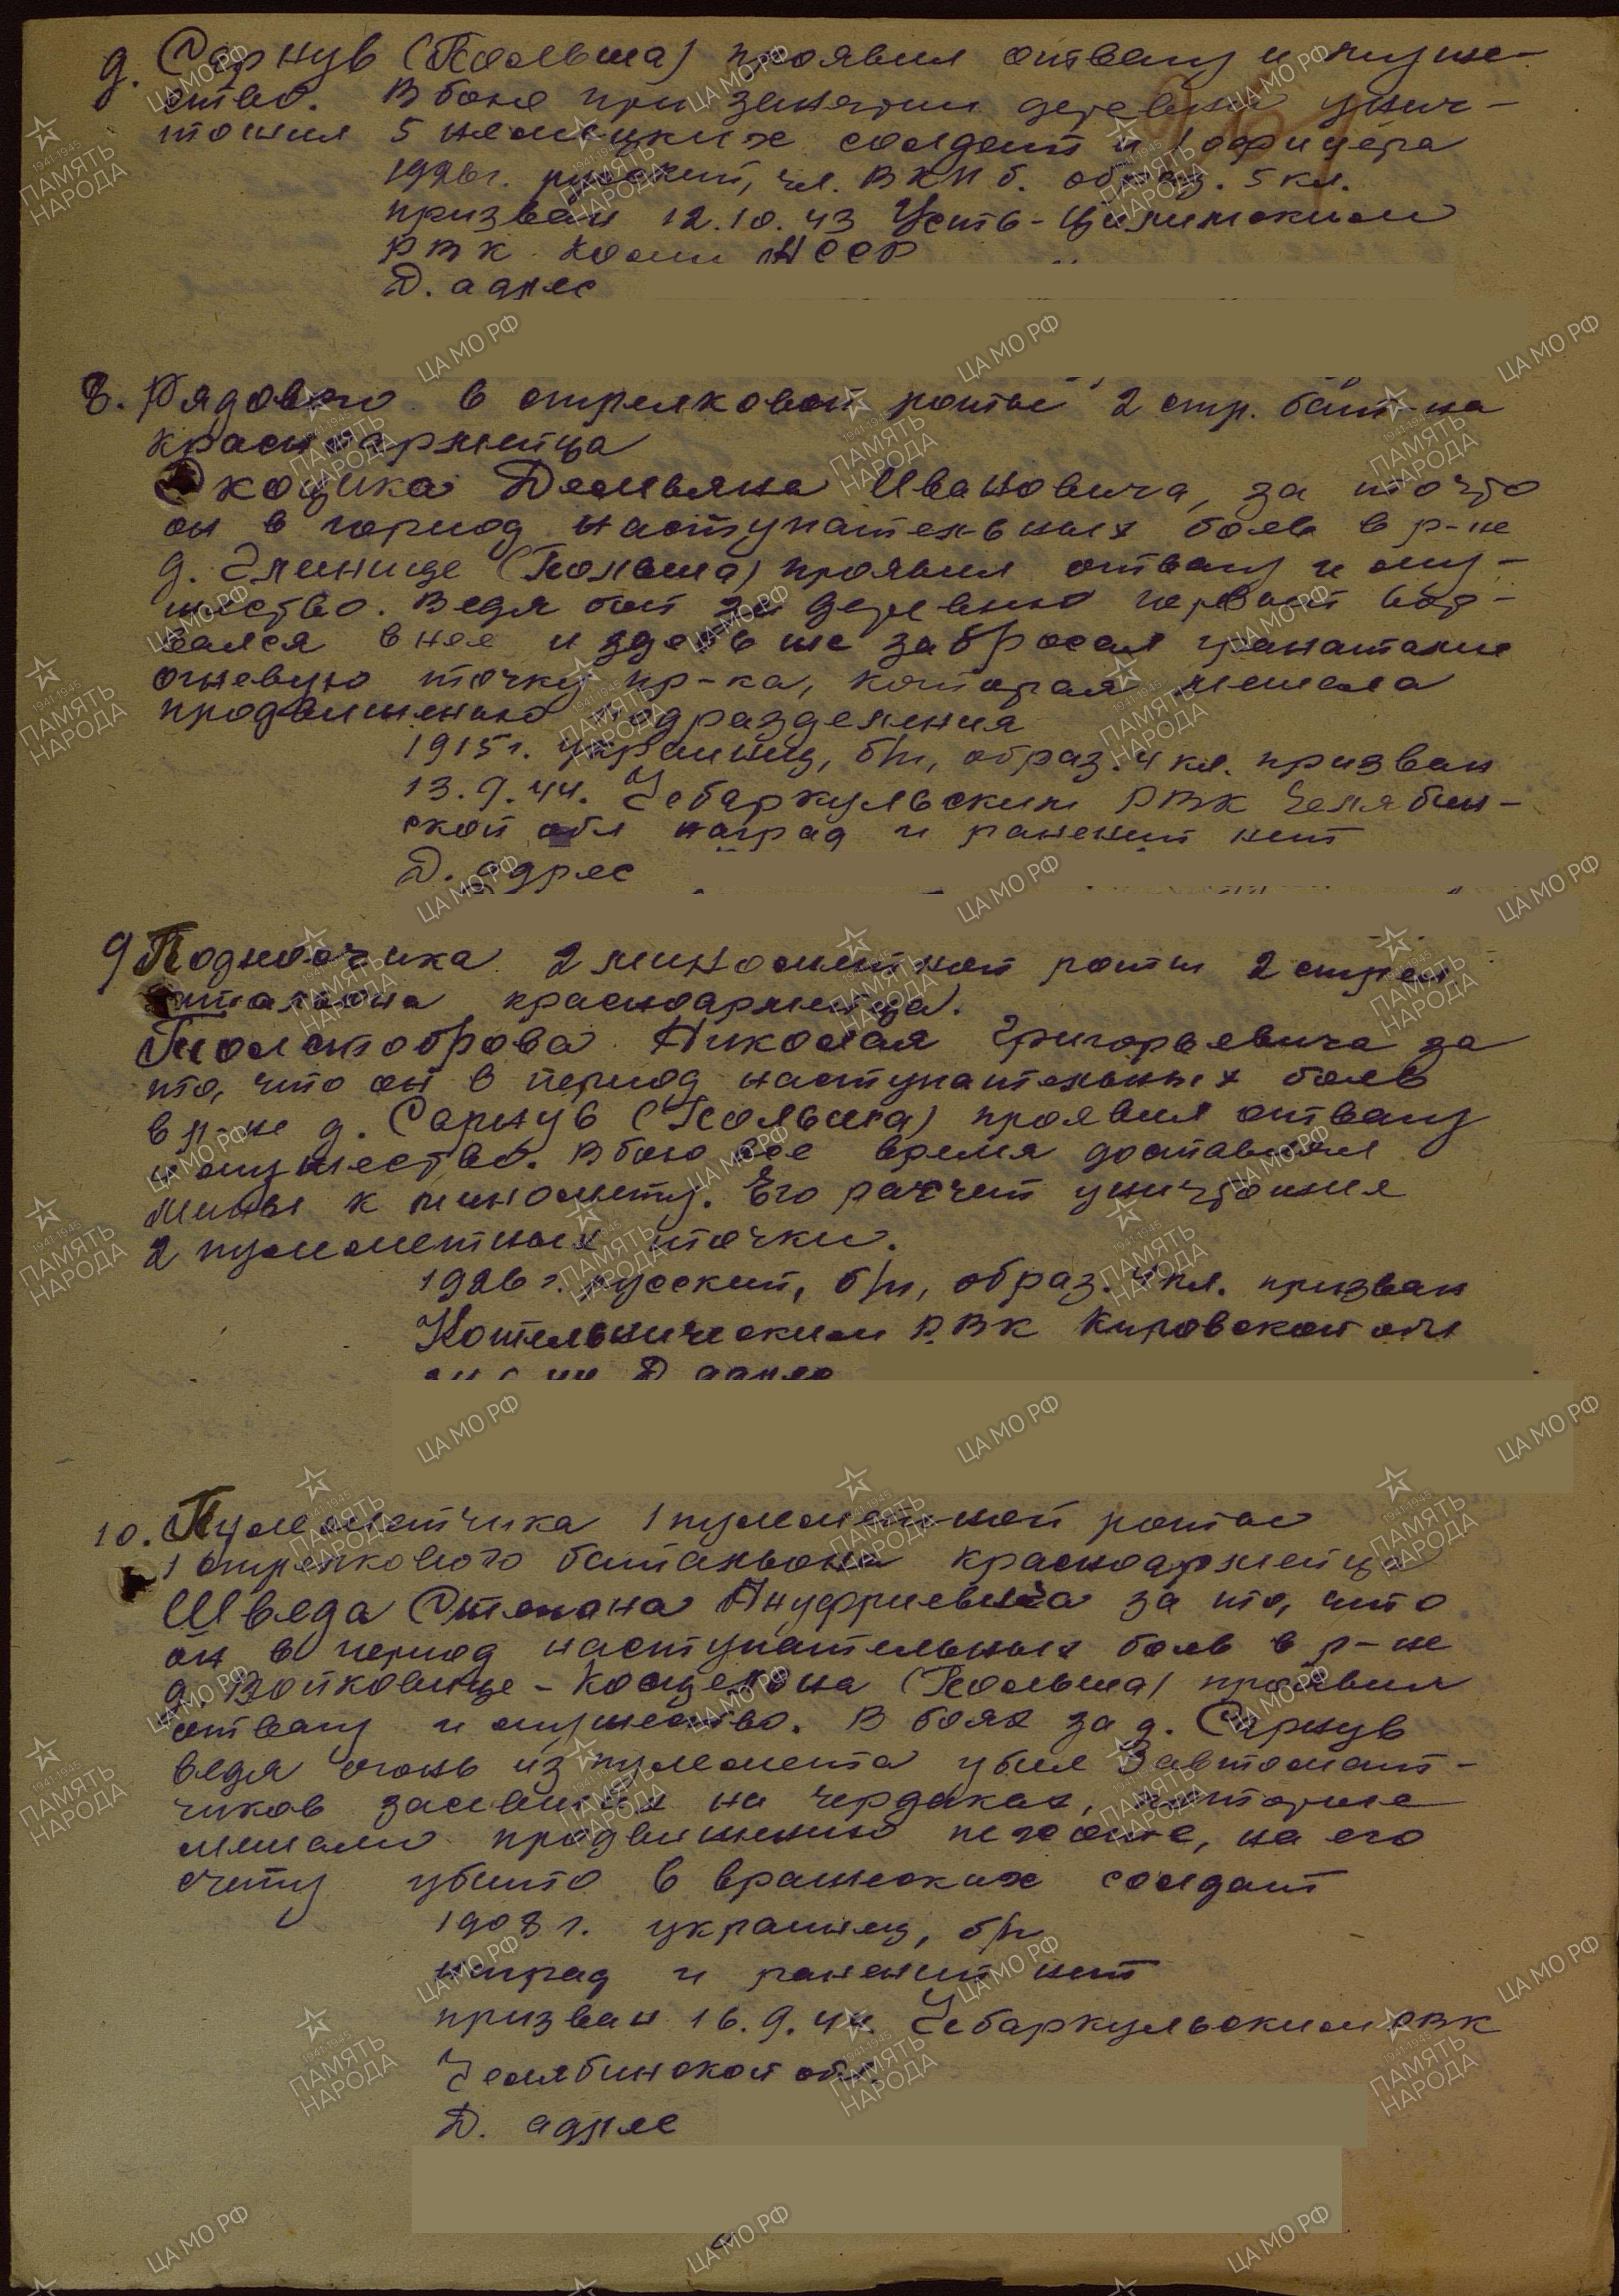 д. Сарнув (Польша) проявил отвагу и муже-
ство. В бою при занятии деревни унич-
тожил 5 немецких солдат и 1 офицера
1926г. русский, чл. ВКП б. образ. 5 кл.
призван 12.10.43 Усть-Цилимским
РВК Коми АССР
Д. адрес
8. Рядового в стрелковой роты 2 стр. бат-на
красноармейца
Скоцика Демьяна Ивановича, за то что
он в период наступательных боев в р-не
д. Глинице (Польша) проявил отвагу и му-
жество. Ведя бой за деревню первый вор-
вался в нее и здесь же забросал гранатами
огневую точку пр-ка, которая мешала
продвижению подразделения
1915г. украинец, б/п, образ. 4 кл. призван
13.9.44. Чебаркульским РВК Челябин-
ской обл наград и ранений нет
Д. адрес
9 Подносчика 2 минометной роты 2 стрел
батальона красноармейца.
Толстоброва Николая Григорьевича за
то, что он в период наступательных боев
в р-не д. Сарнув (Польша) проявил отвагу
и мужество. В бою все время доставлял
мины к миномету. Его расчет уничтожил
2 пулеметных точки.
1926 г. русский, б/п, образ. 4 кл. призван
Котельническим РВК Кировской обл
Д адрес
10. Пулеметчика 1 пулеметной роты
1 стрелкового батальона красноармейца
Шведа Степана Ануфриевича за то, что
он в период наступательных боев в р-не
д. Войковице-Косцельна (Польша) проявил
отвагу и мужество. В боях за д. Сарнув
ведя огонь из пулемета убил 3 автомат-
чиков засевших на чердаках, которые
мешали продвижению пехоте, на его
счету убито 6 вражеских солдат
1908 г. украинец, б/п
наград и ранений нет
призван 16.9.44 Чебаркульским РВК
Челябинской обл.
Д. адрес